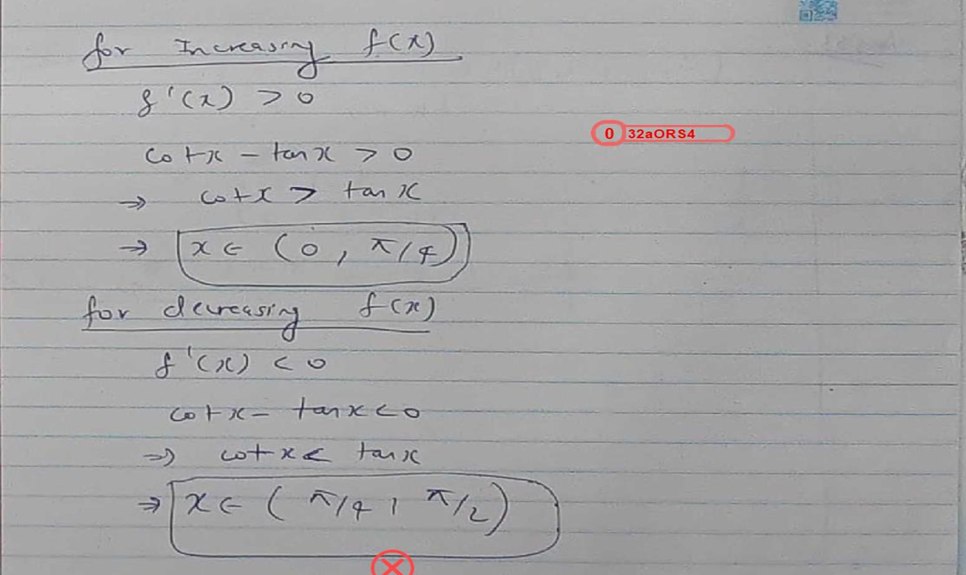 for Increasing f(x)
f'(x) > 0
0 32aORS4
cotx - tanx > 0
⇒ cotx > tanx
⇒ x ∈ (0, π/4)
for decreasing f(x)
f'(x) < 0
cotx - tanx < 0
⇒ cotx < tanx
⇒ x ∈ (π/4, π/2)